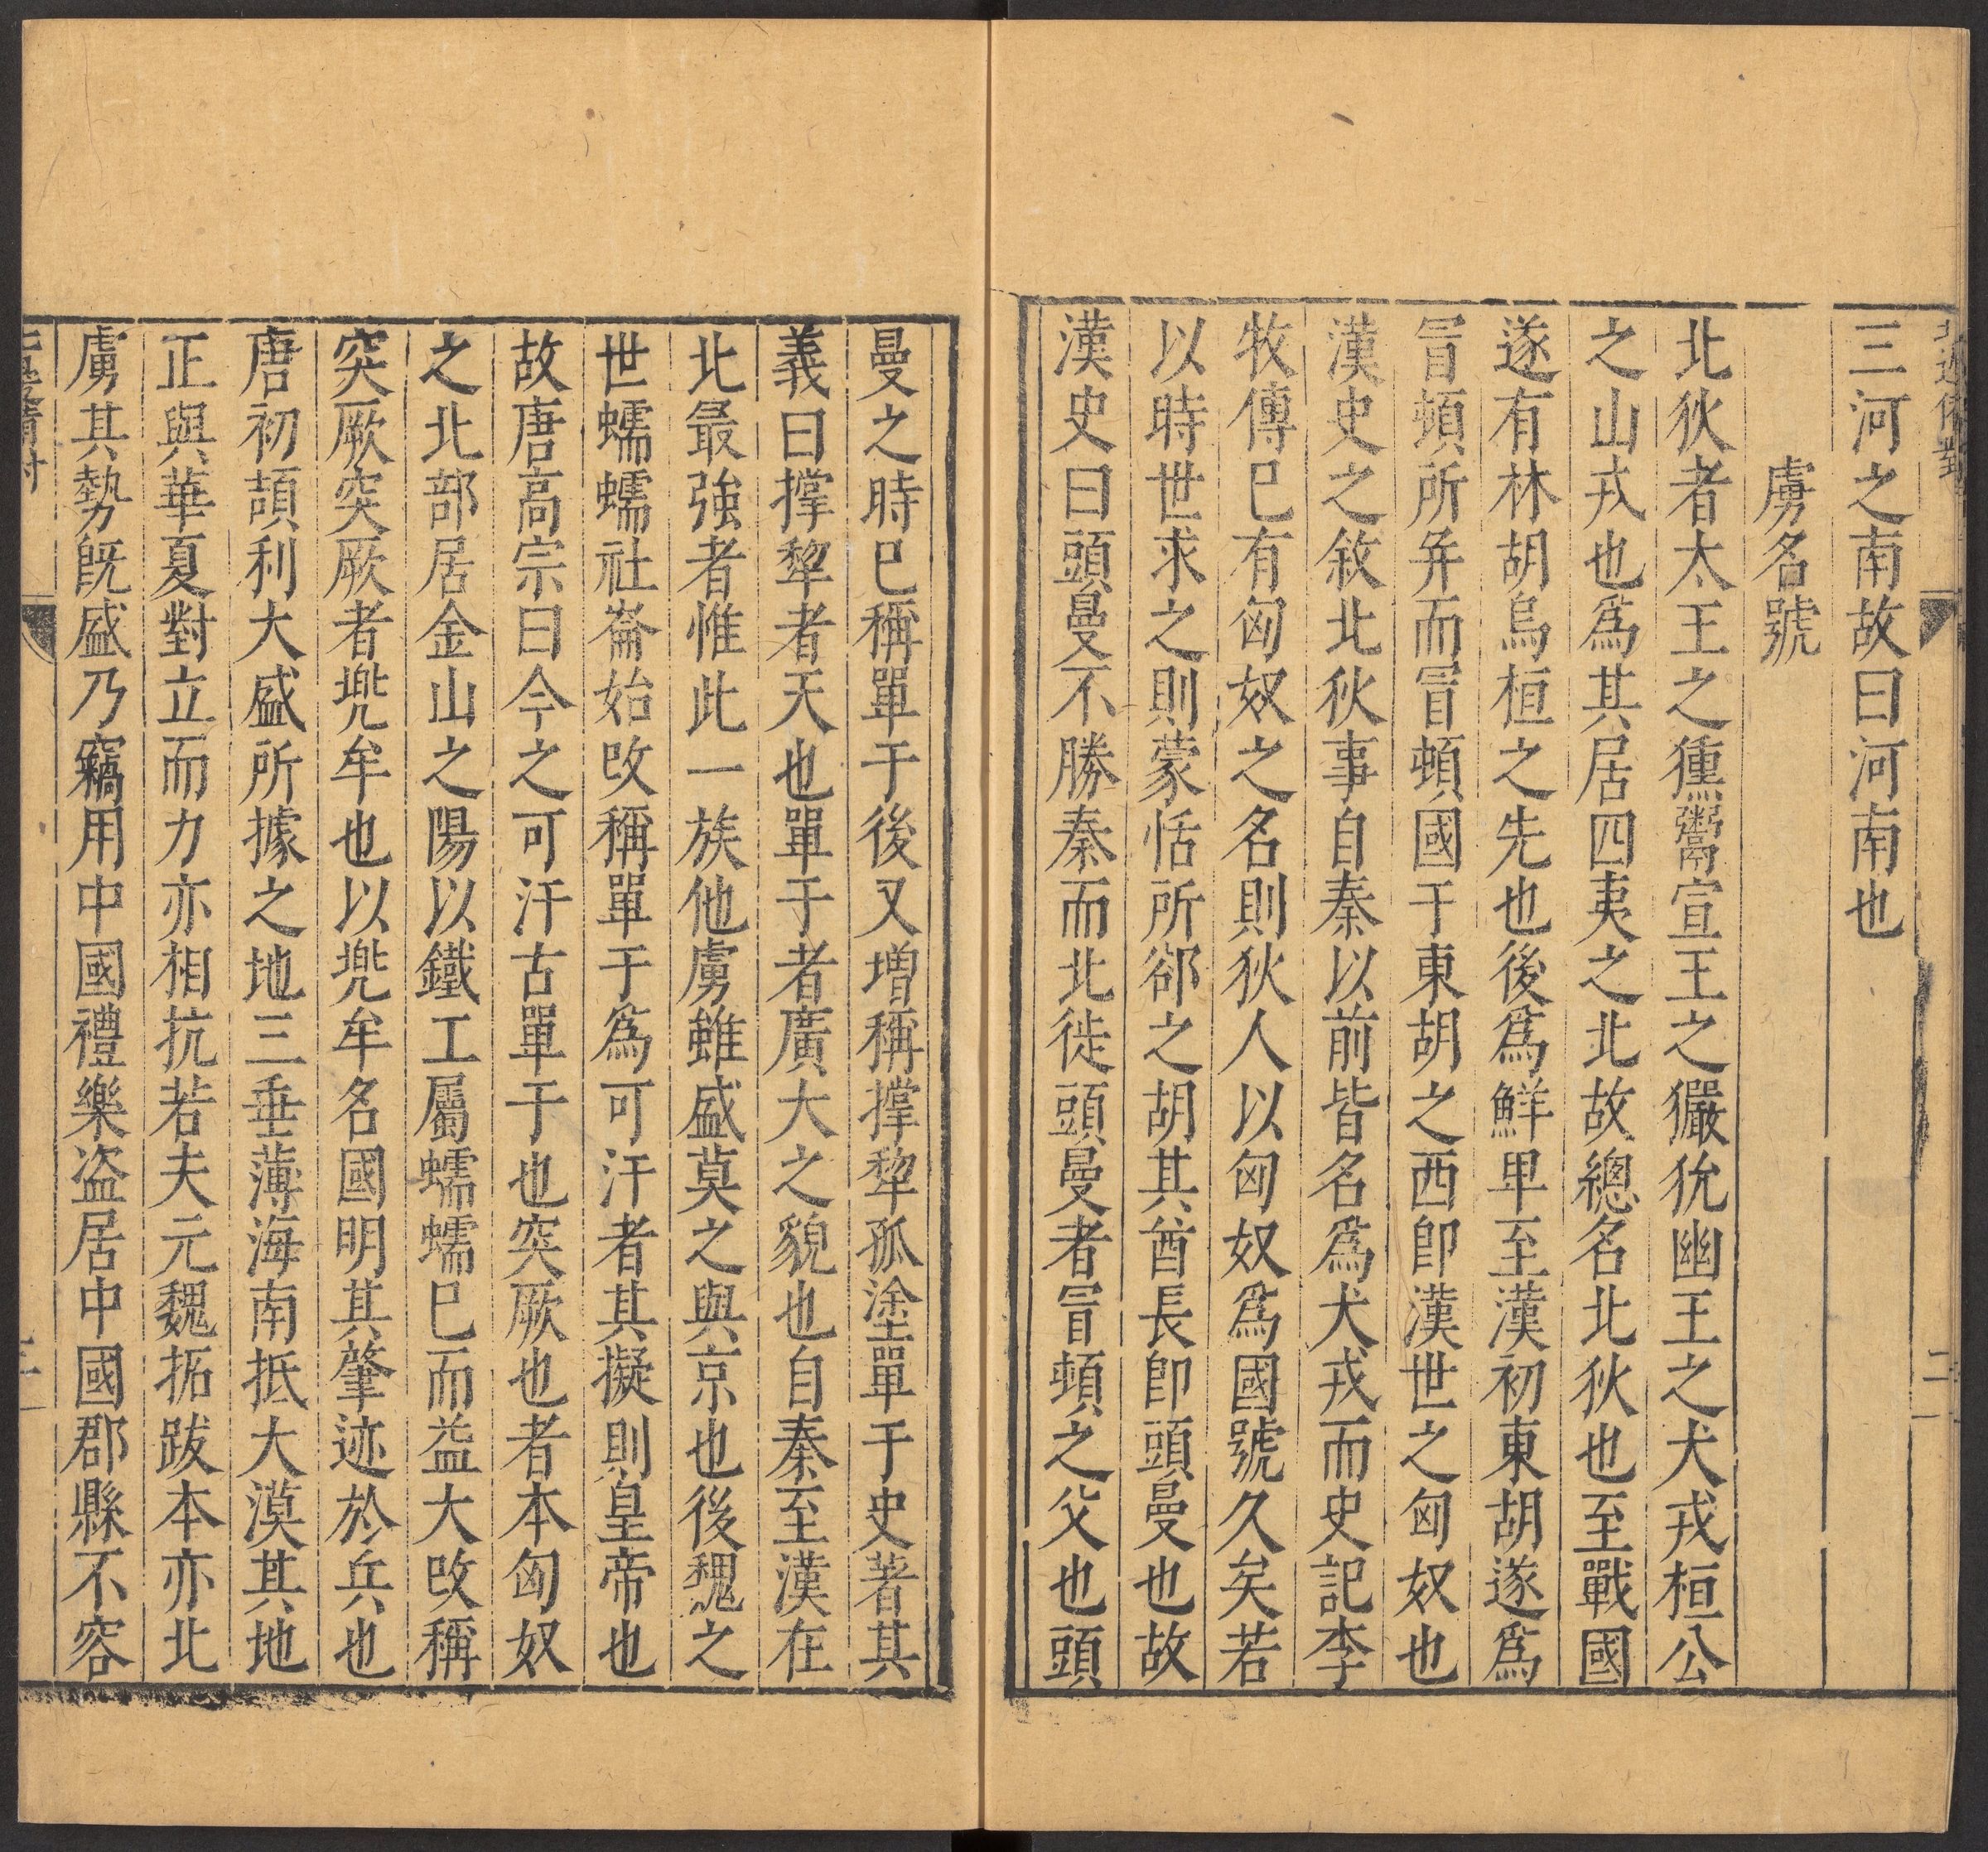 三河之南故曰河南也
虜名號
北狄者太王之獯鬻宣王之玁狁幽王之犬戎桓公
之山戎也爲其居四夷之北故總名北狄也至戰國
遂有林胡烏桓之先也後爲鮮卑至漢初東胡遂爲
冒頓所并而冒頓國于東胡之西卽漢世之匈奴也
漢史之敘北狄事自秦以前皆名爲犬戎而史記李
牧傳巳有匈奴之名則狄人以匈奴爲國號久矣若
以時世求之則蒙恬所郤之胡其酋長卽頭曼也故
漢史曰頭曼不勝秦而北徙頭曼者冒頓之父也頭
曼之時巳稱單于後又增稱撑犂孤塗單于史著其
義曰撑犂者天也單于者廣大之貌也自秦至漢在
北最強者惟此一族他虜雖盛莫之與京也後魏之
世蠕蠕社崙始改稱單于爲可汗者其擬則皇帝也
故唐高宗曰今之可汗古單于也突厥也者本匈奴
之北部居金山之陽以鐵工屬蠕蠕巳而益大改稱
突厥突厥者兠牟也以兠牟名國明其肇迹於兵也
唐初頡利大盛所據之地三垂薄海南抵大漠其地
正與華夏對立而力亦相抗若夫元魏拓跋本亦北
虜其勢旣盛乃竊用中國禮樂盗居中國郡縣不容